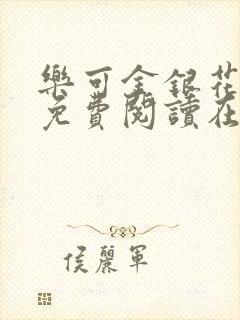 樂可金銀花
免費閱讀在
侯麗軍